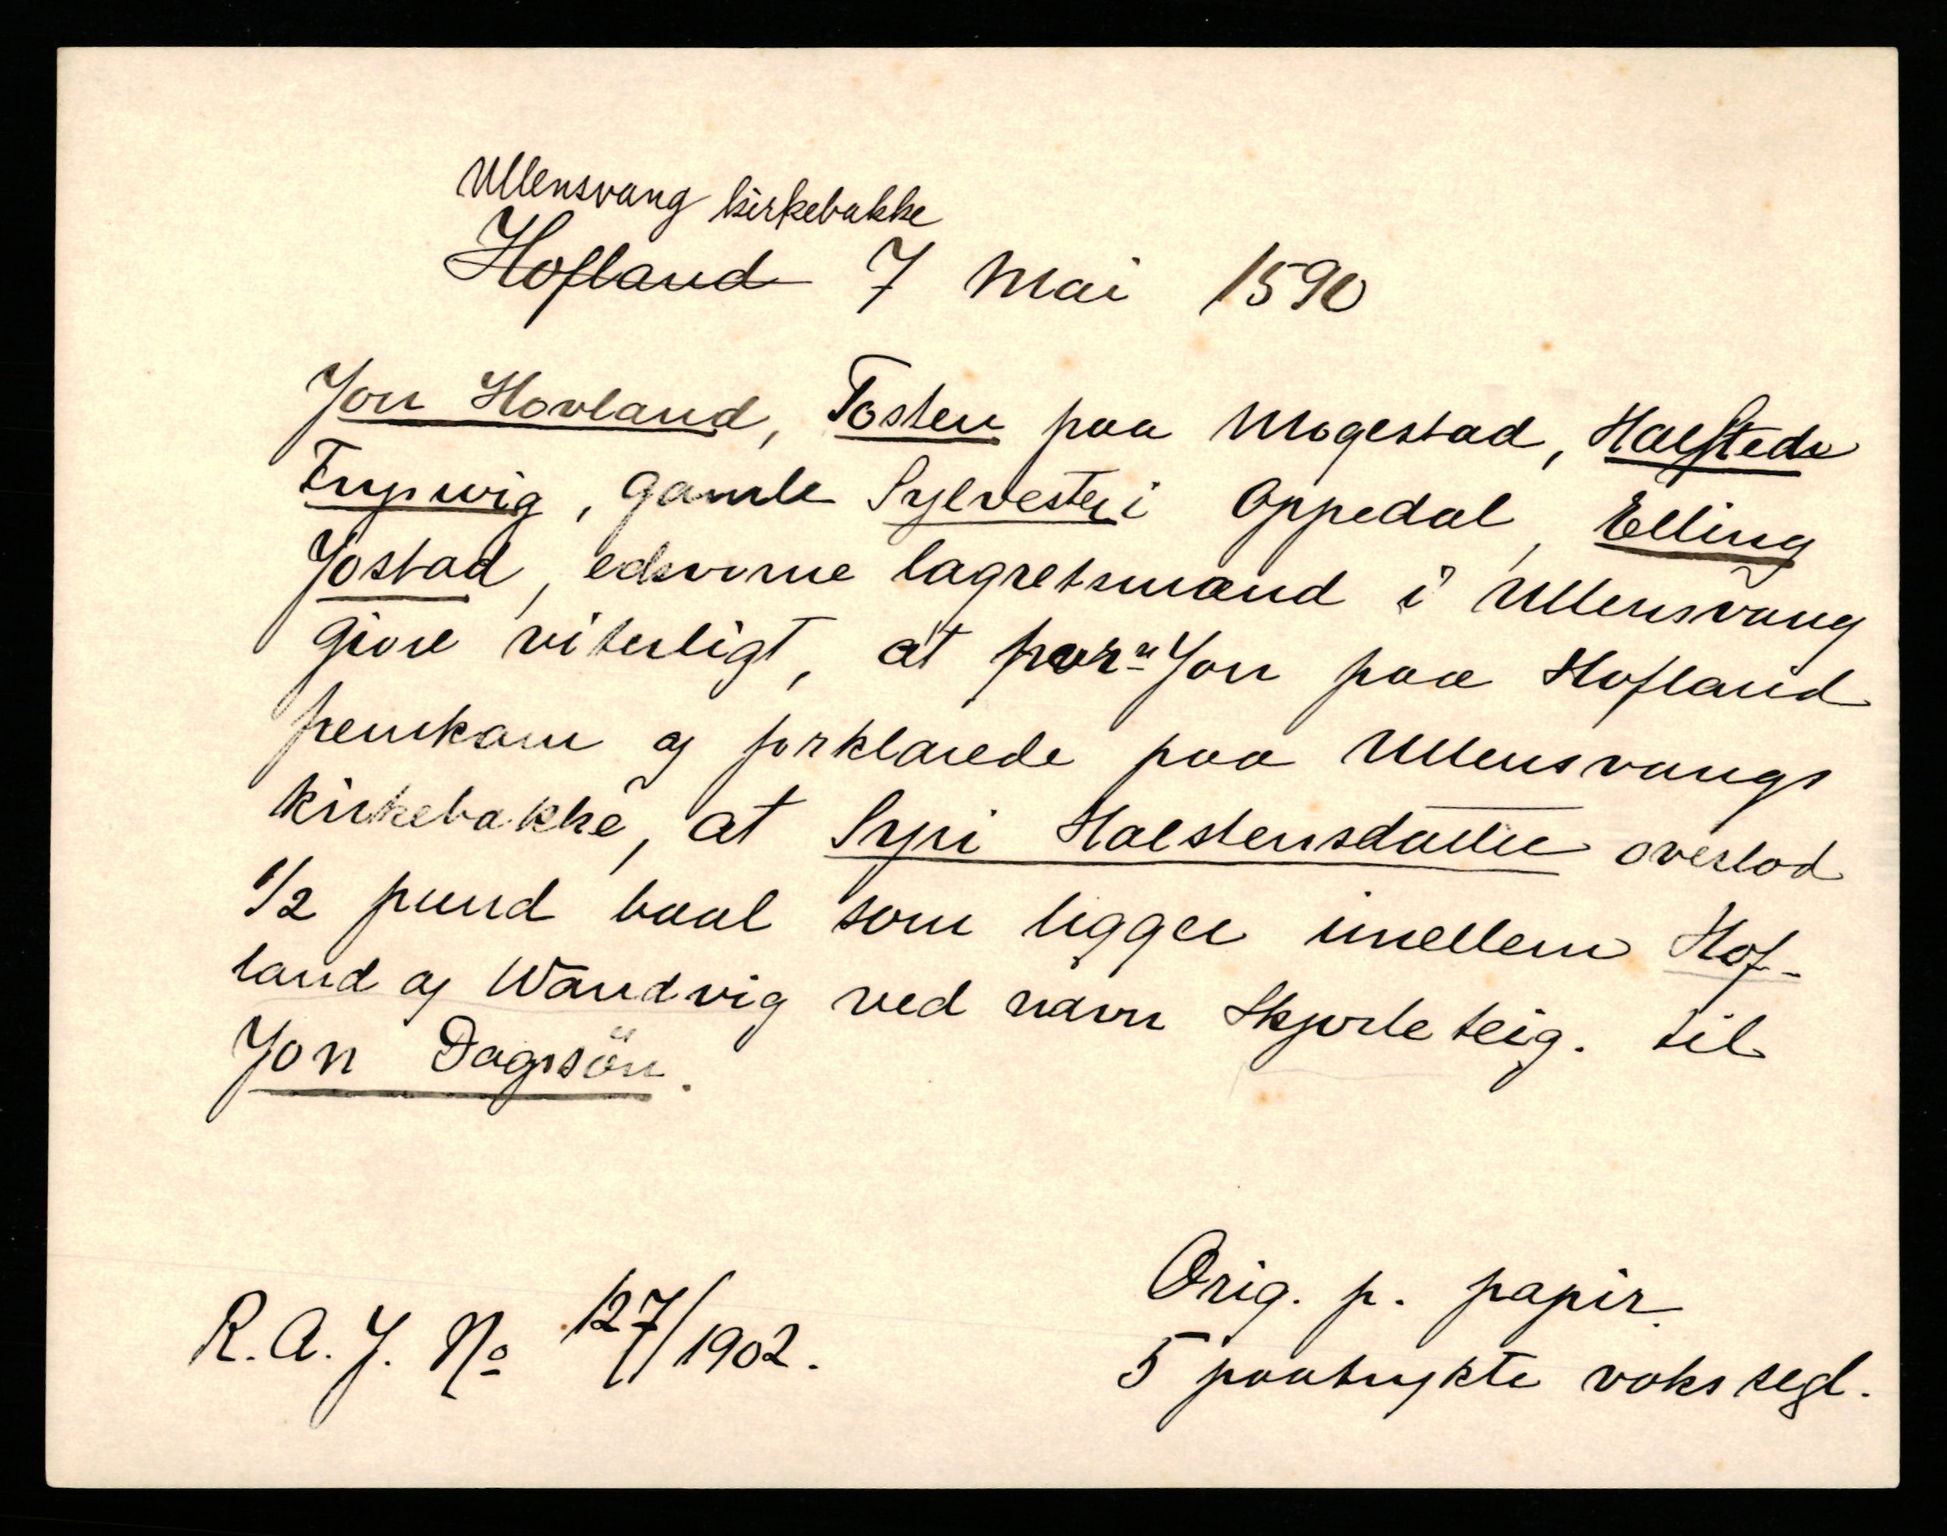 Ullensvang kirkebakke
Hofland 7 Mai 1590
Jon Hovland, Tosten paa Mogestad, Halstede
Frywig, gamle Sylvester i Oppedal, Elling
Jostad, edsvorne lagretsmænd i Ullensvang
giøre viterligt, at for n Jon paa Hofland
fremkom og forklarede paa Ullensvangs
kirkebakke, at Syri Halstensdatter overlod
1/2 pund baal som ligger imellem Hof-
land og Wandvig ved navn Skjorte teig. til
Jon Dagssön.
Orig. p. papir.
R. A. J. No 127/1902.
5 paatrykte vokssegl.